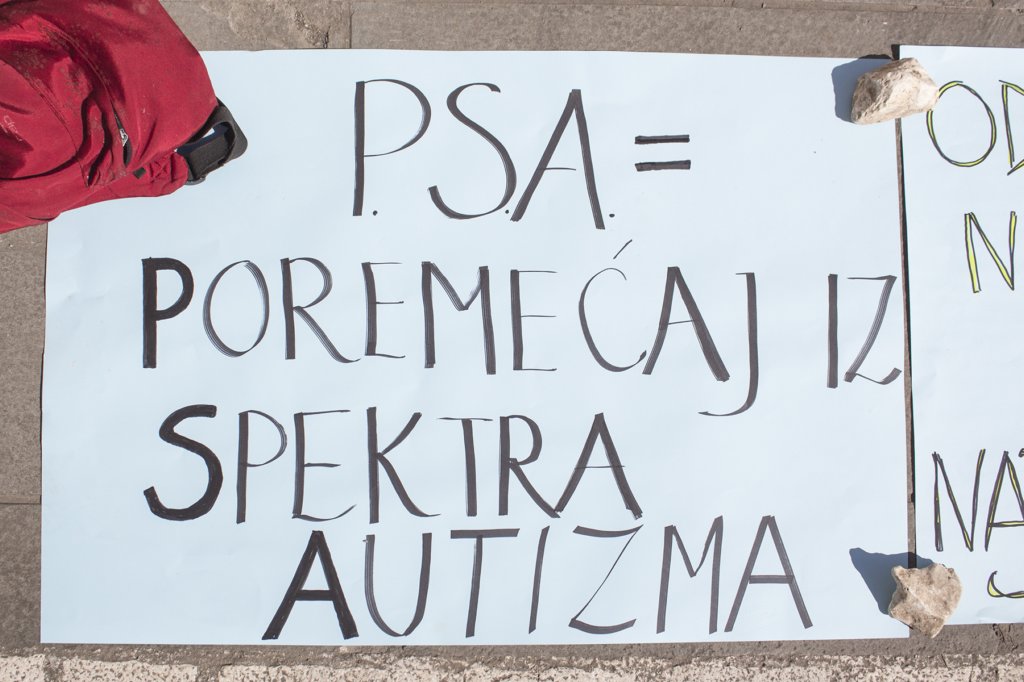 P.S.A. =
POREMEĆAJ IZ
SPEKTRA
AUTIZMA